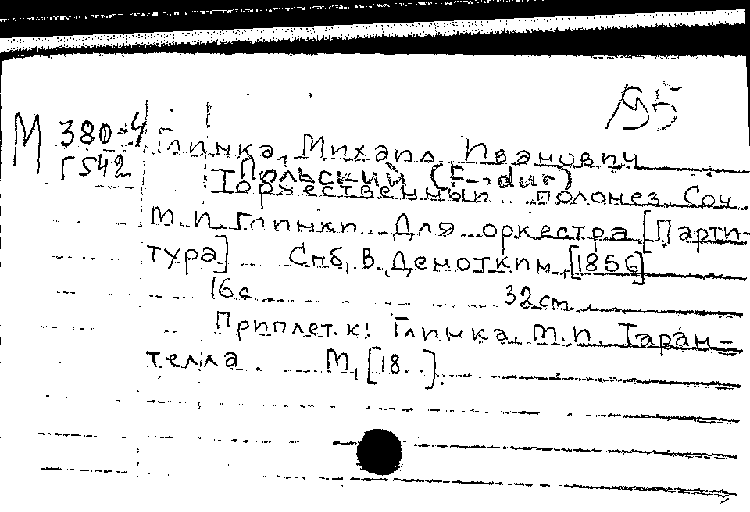 95
М 380-4 Глинка, Михаил Иванович
Г542 Польский (F-dur)
Торжественный полонез. Соч.
М.И. Глинки. Для оркестра [Парти-
тура] Спб, В. Деноткин, [1856]
16с. 32cm.
Приплет. к: Глинка, М.И. Таран-
телла. М, [18..].